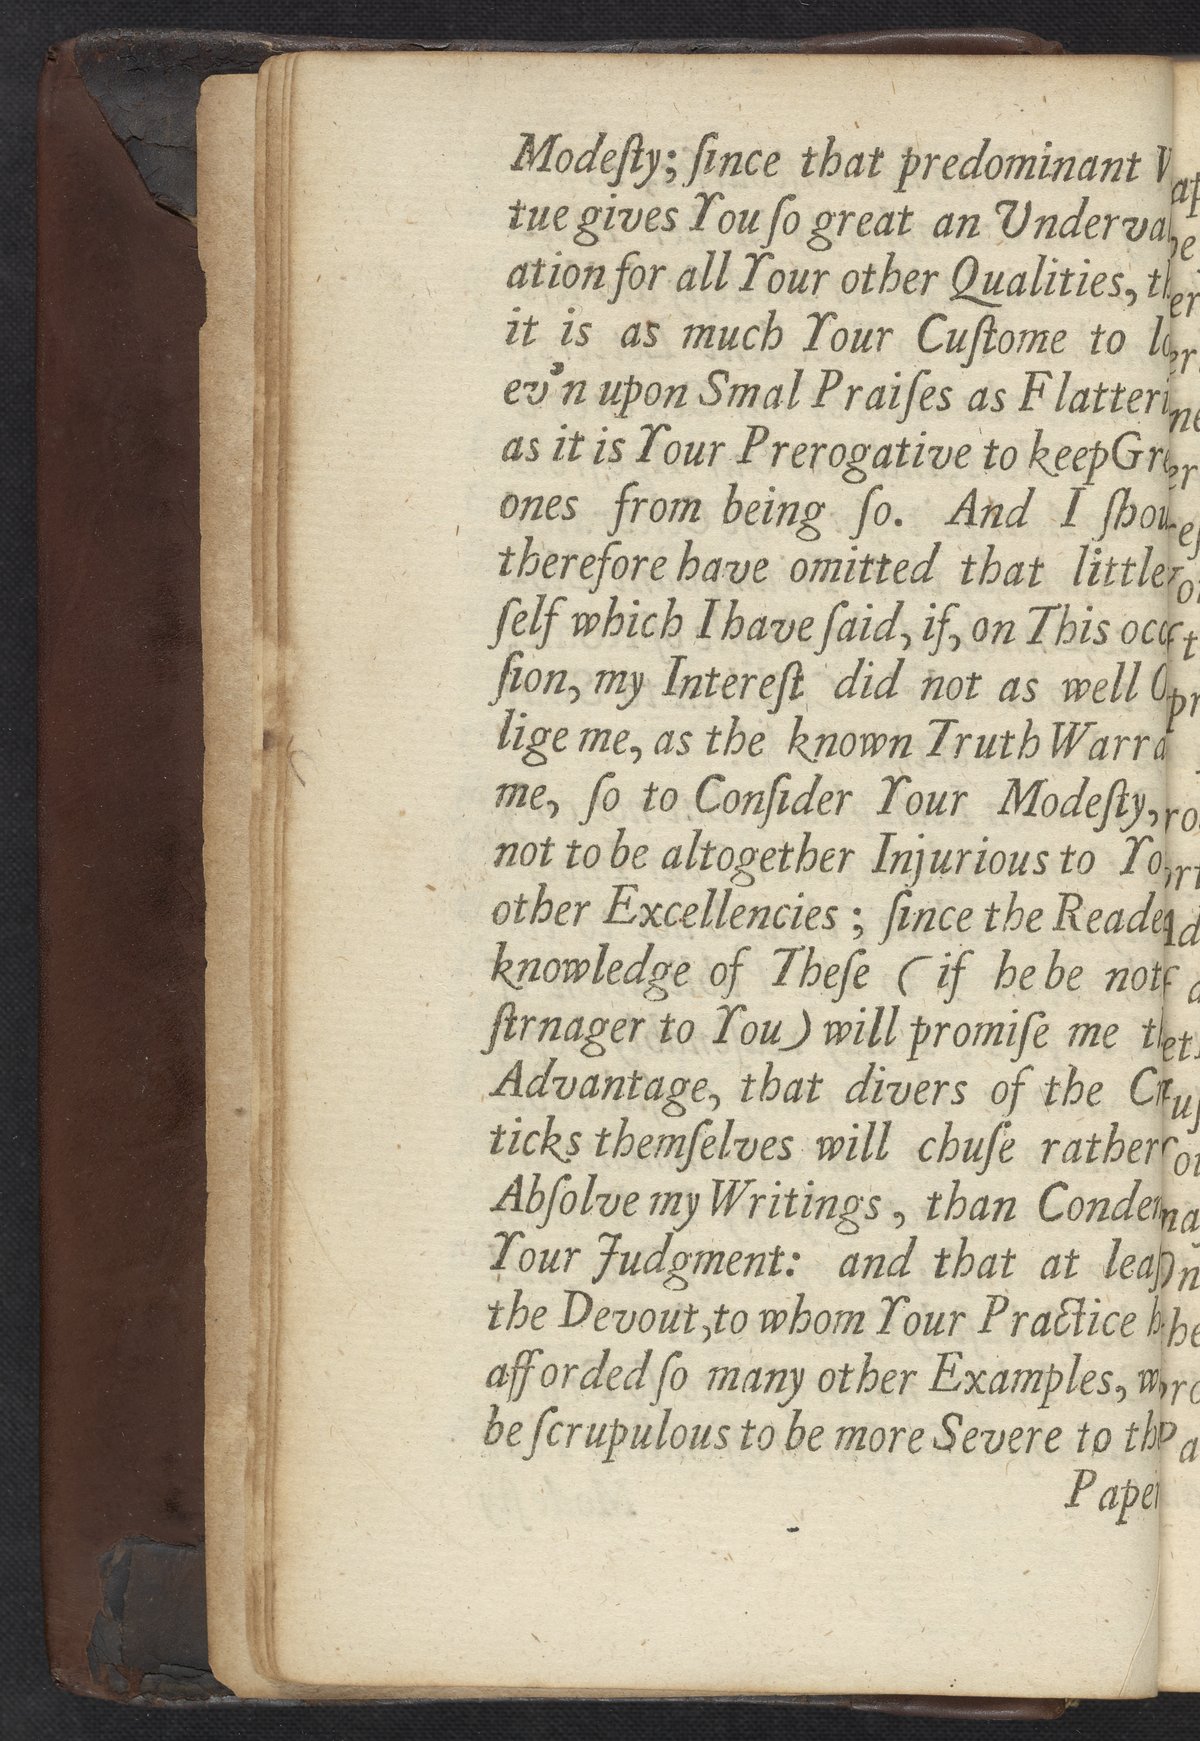 Modeſty; ſince that predominant V
tue gives You ſo great an Underva
ation for all Your other Qualities, th
it is as much Your Cuſtome to lo
ev'n upon Smal Praiſes as Flatteri
as it is Your Prerogative to keep Gre
ones from being ſo. And I ſhou
therefore have omitted that little
ſelf which I have ſaid, if, on This occa
ſion, my Intereſt did not as well O
lige me, as the known Truth Warra
me, ſo to Conſider Your Modeſty,
not to be altogether Injurious to Yo
other Excellencies; ſince the Reade
knowledge of Theſe (if he be not
ſtrnager to You) will promiſe me th
Advantage, that divers of the Cri
ticks themſelves will chuſe rather
Abſolve my Writings, than Condem
Your Judgment: and that at leaſ
the Devout, to whom Your Practice h
afforded ſo many other Examples, w
be ſcrupulous to be more Severe to th
Paper